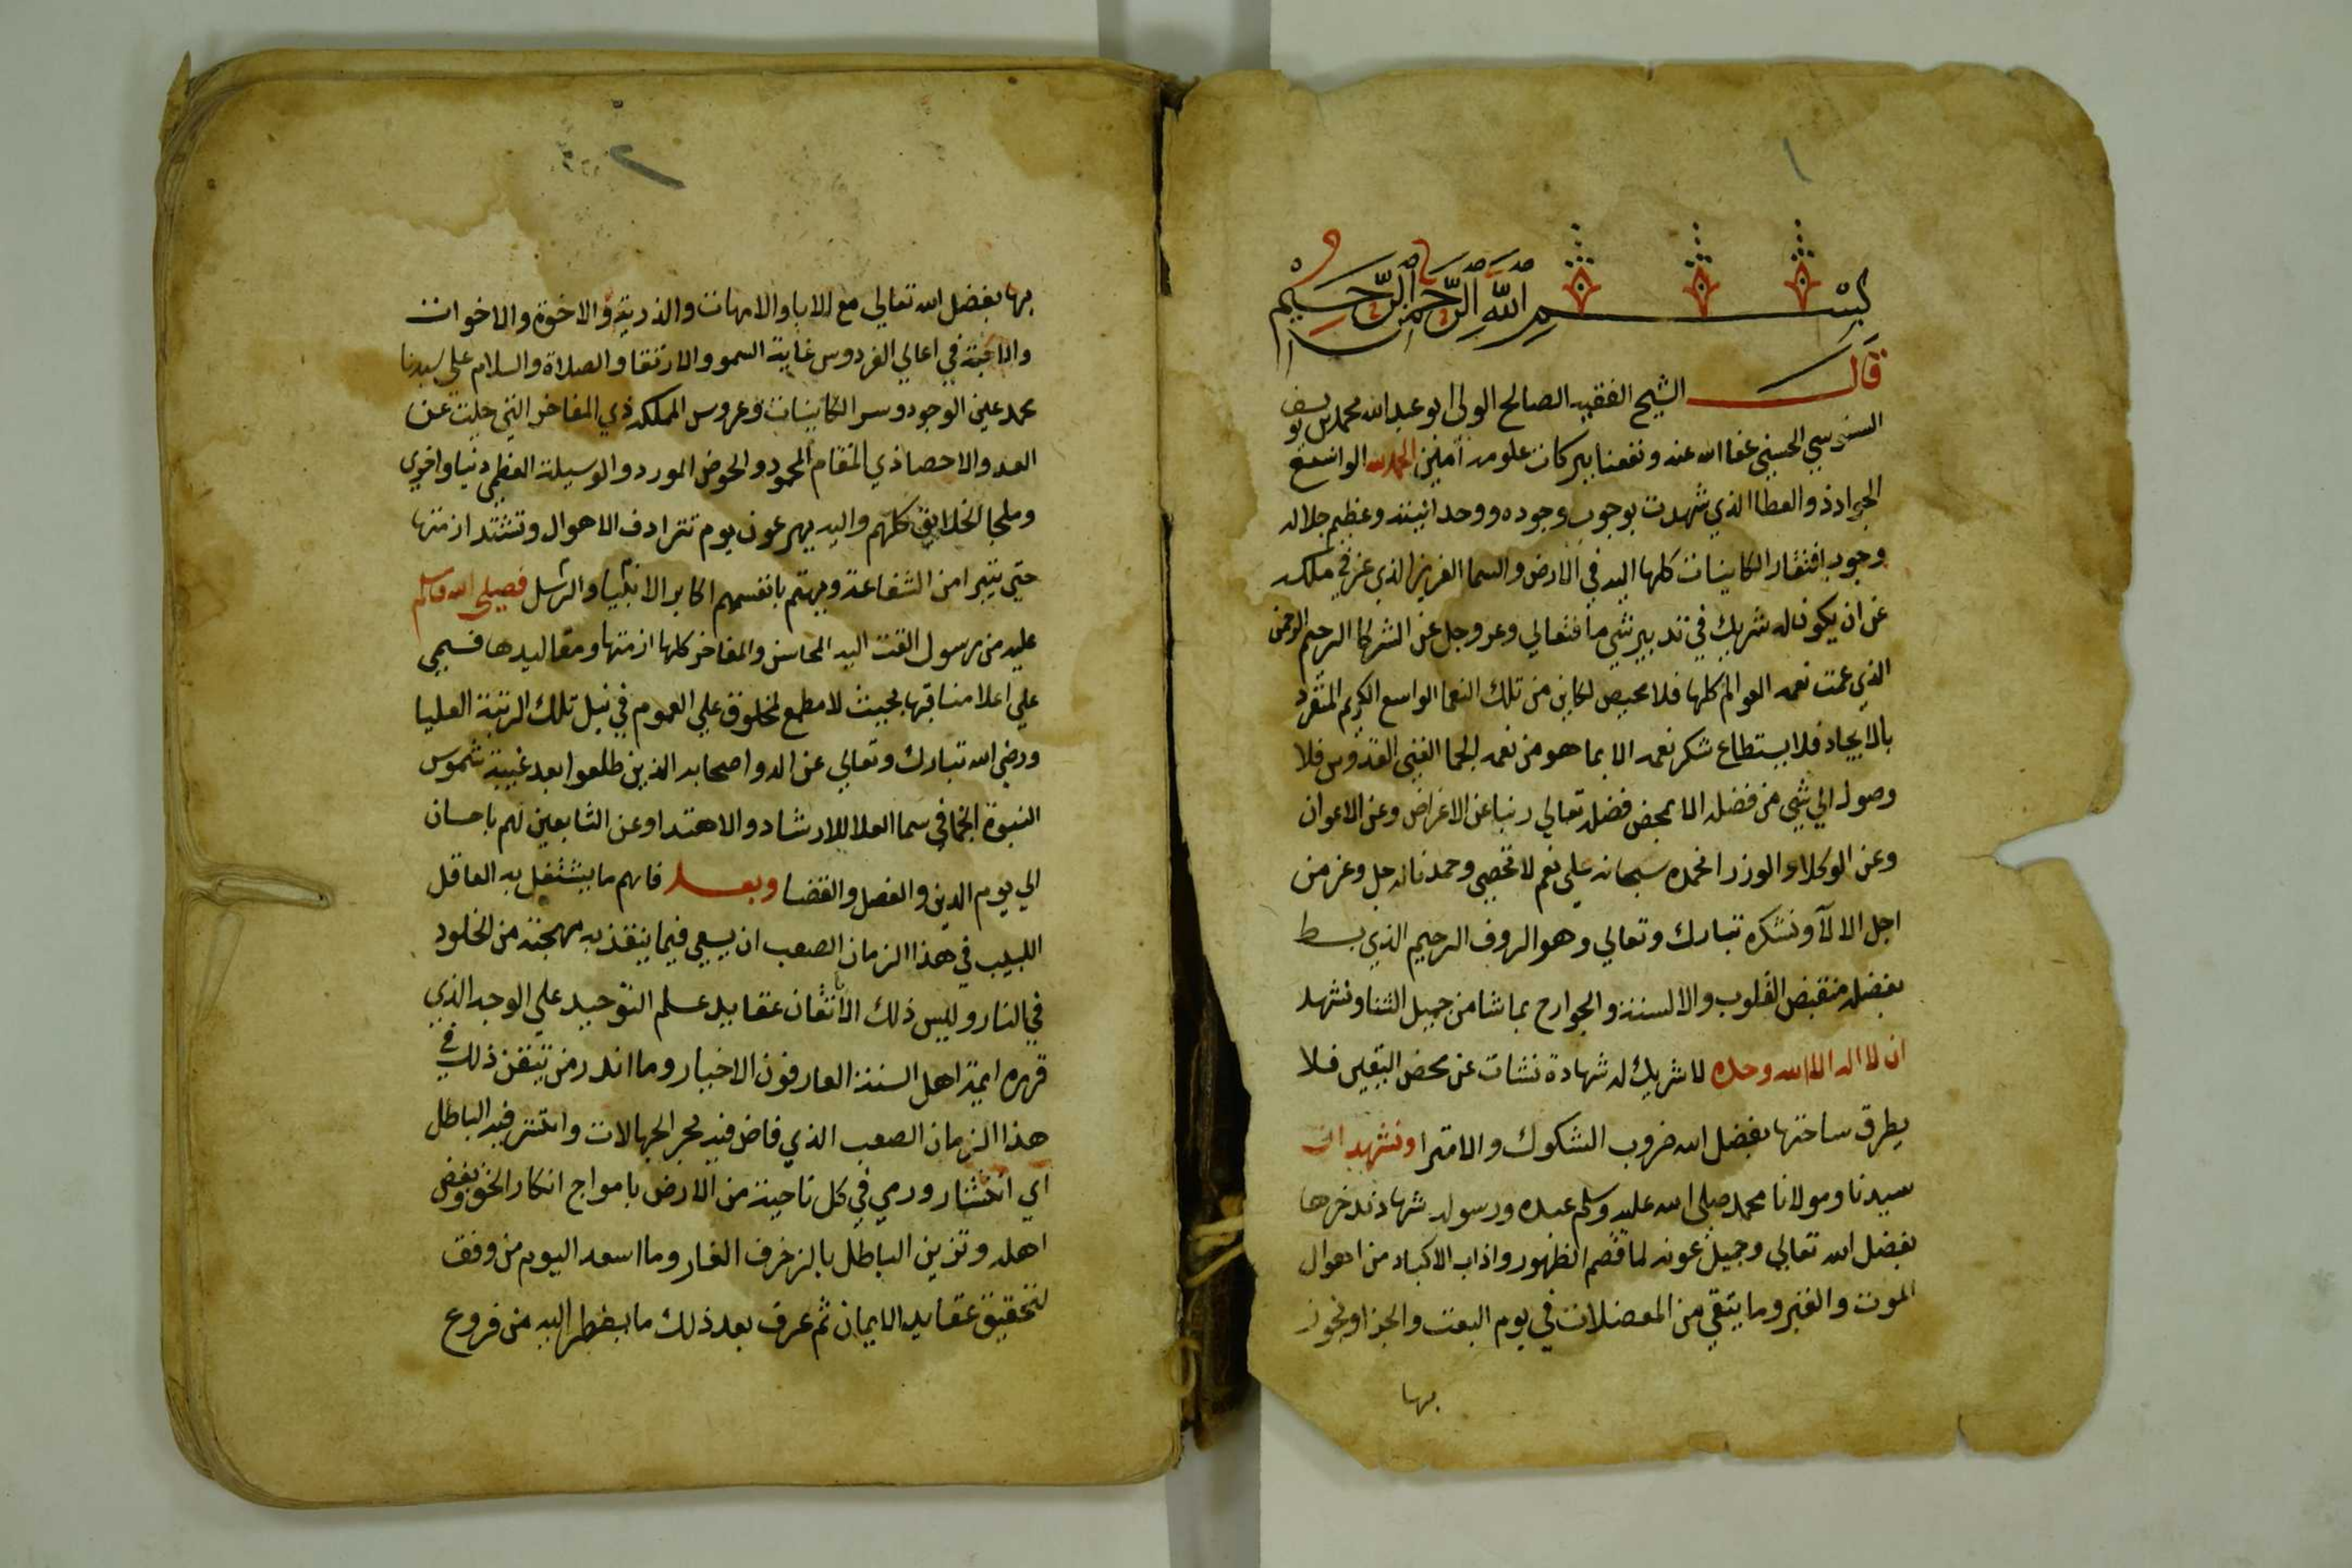 ١
بسم الله الرحمن الرحيم
قال الشيخ الفقيه الصالح الولى ابو عبد الله محمد بن يوسف
السنوسي الحسني عفا الله عنه ونفعنا ببركات علومه آمين الحمد لله الواسع
الجواد ذو العطا الذي شهدت بوجوب وجوده ووحدانيته وعظيم جلاله
وجوب افتقار الكاينات كلها اليه في الارض والسما العزيز الذي عز في ملكه
عن ان يكون له شريك في تدبير شي ما فتعالي وعز وجل عن الشركا الرحيم الرحمن
الذي عمت نعمه العوالم كلها فلا محيص لكاين من تلك النعما الواسع الكريم المتفرد
بالايجاد فلا يستطاع شكر نعمه الا بما هو من نعمه الجما الغني القدوس فلا
وصول الي شي من فضله الا بمحض فضله تعالي ربنا عن الاغراض وعن الاعوان
وعن الوكلا والوزرا نحمده سبحانه علي نعم لا تحصى وحمدنا له جل وعز من
اجل الالآ ونشكره تبارك وتعالي وهو الروف الرحيم الذي بسط
بفضله منقبض القلوب والالسنة والجوارح بما شا من جميل الثنا ونشهد
ان لا اله الا الله وحده لا شريك له شهادة نشات عن محض اليقين فلا
يطرق ساحتها بفضل الله ضروب الشكوك والامترا ونشهد ان
سيدنا ومولانا محمد صلى الله عليه وسلم عبده ورسوله شهادة ندخرها
بفضل الله تعالي وجميل عونه لما قصم الظهور واذاب الاكباد من اهوال
الموت والقبر وما يتقي من المعضلات في يوم البعث والجزا ونحوز
بها
٢
بها بفضل الله تعالي مع الابا والامهات والذرية والاخوة والاخوات
والاحبة في اعالي الفردوس غاية السمو والارتقا والصلاة والسلام علي سيدنا
محمد عين الوجود وسر الكاينات وعروس المملكه ذي المفاخر التي جلت عن
العد والاحصا ذي المقام المحمود والحوض المورد والوسيلة العظمي دنيا واخري
وملجا الخلايق كلهم واليه يهرعون يوم تترادف الاهوال وتشتد ازمتها
حتي يتبرا من الشفاعة ويهتم بانفسهم اكابر الانبيا والرسل فصلى الله وسلم
عليه من رسول القت اليه المحاسن والمفاخر كلها ازمتها ومقاليدها فسمي
علي اعلا مناقبها بحيث لا مطمع لمخلوق علي العموم في نيل تلك الرتبة العليا
ورضي الله تبارك وتعالي عن اله واصحابه الذين طلعوا بعد غيبة شموس
النبوة انجما في سما العلا للارشاد والاهتدا وعن التابعين لهم باحسان
الي يوم الدين والفصل والقضا وبعد فاهم ما يشتغل به العاقل
اللبيب في هذا الزمان الصعب ان يسعي فيما ينقذ به مهجته من الخلود
في النار وليس ذلك الا باتقان عقايد علم التوحيد علي الوجه الذي
قرره ايمة اهل السنة العارفون الاخيار وما اندر من يتقن ذلك في
هذا الزمان الصعب الذي فاض فيه بحر الجهالات وانتشر فيه الباطل
اي انتشار ورمي في كل ناحية من الارض بامواج انكار الحق وبغض
اهله وتزيين الباطل بالزخرف الغار وما اسعد اليوم من وفق
لتحقيق عقايد الايمان ثم عرف بعد ذلك ما يضطر اليه من فروع